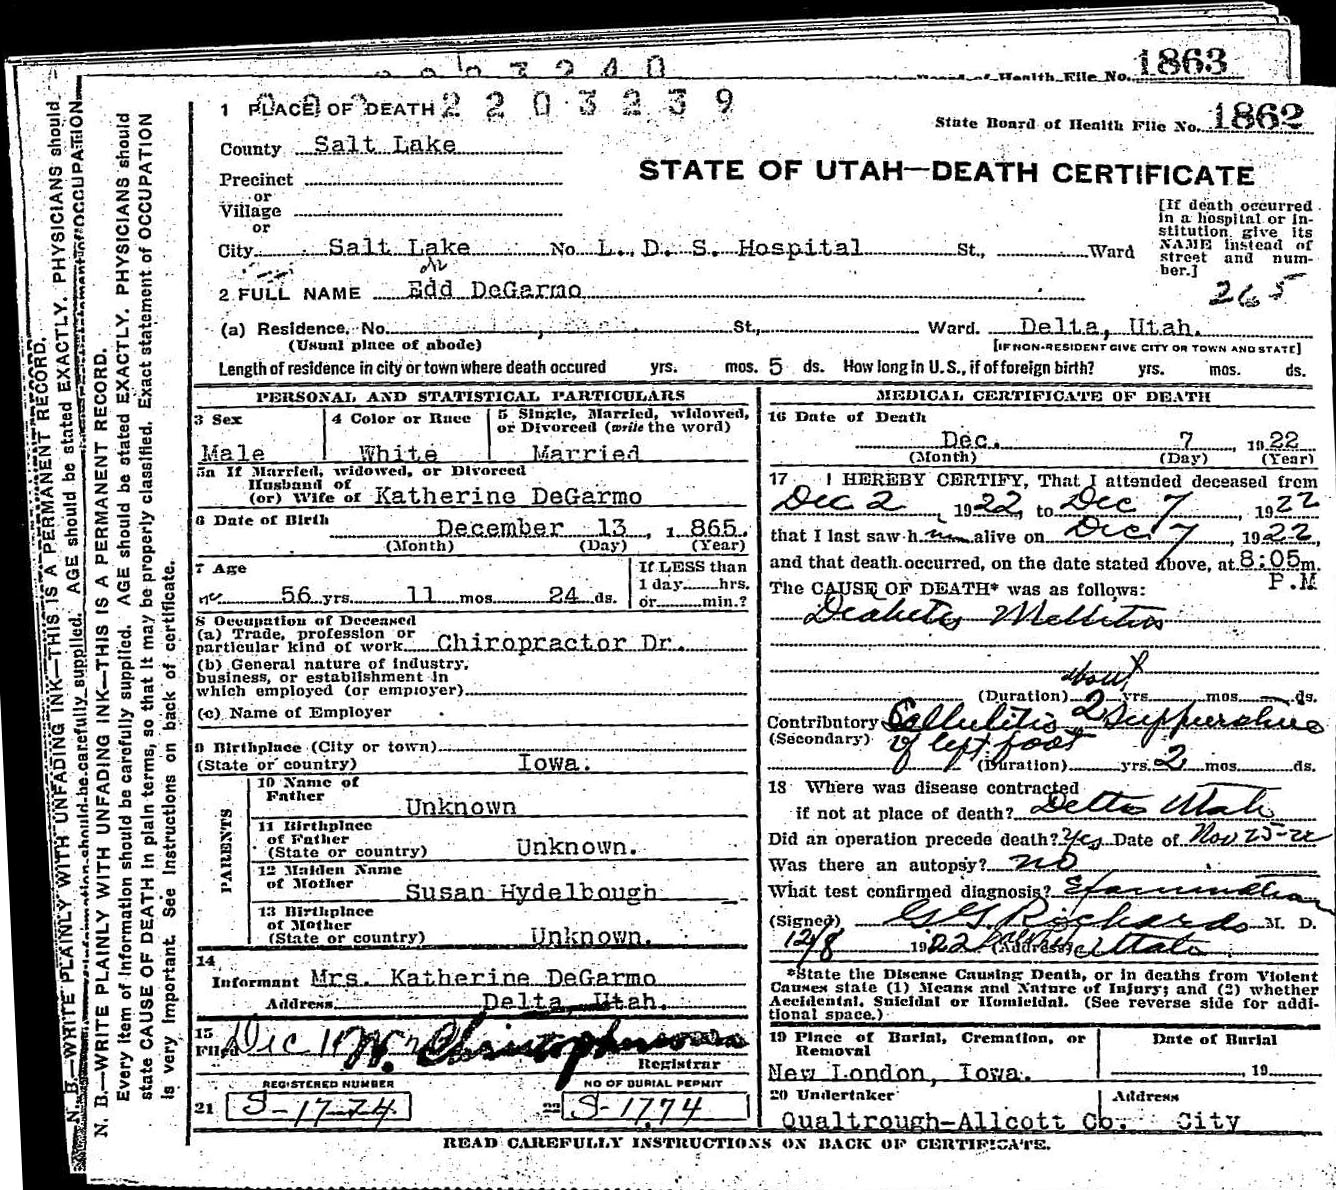 1863
State Board of Health File No.
003240
1 PLACE OF DEATH 2203239
State Board of Health File No. 1862
County Salt Lake
STATE OF UTAH—DEATH CERTIFICATE
Precinct
or
Village
or
City Salt Lake No L. D. S. Hospital St., Ward
[If death occurred in a hospital or in-
stitution, give its
NAME instead of
street and num-
ber.]
265
2 FULL NAME Edd DeGarmo
(a) Residence, No. St., Ward. Delta, Utah.
(Usual place of abode) [IF NON-RESIDENT GIVE CITY OR TOWN AND STATE]
Length of residence in city or town where death occured yrs. mos. 5 ds. How long in U. S., if of foreign birth? yrs. mos. ds.
PERSONAL AND STATISTICAL PARTICULARS
3 Sex
Male
4 Color or Race
White
5 Single, Married, widowed,
or Divorced (write the word)
Married
5a If Married, widowed, or Divorced
Husband of
(or) Wife of Katherine DeGarmo
6 Date of Birth
December 13, 1865.
(Month) (Day) (Year)
7 Age
56 yrs. 11 mos. 24 ds.
If LESS than
1 day hrs.
or min.?
8 Occupation of Deceased
(a) Trade, profession or
particular kind of work Chiropractor Dr.
(b) General nature of industry,
business, or establishment in
which employed (or employer)
(c) Name of Employer
9 Birthplace (City or town)
(State or country) Iowa.
PARENTS
10 Name of
Father Unknown
11 Birthplace
of Father
(State or country) Unknown.
12 Maiden Name
of Mother Susan Hydelbough
13 Birthplace
of Mother
(State or country) Unknown.
14
Informant Mrs. Katherine DeGarmo
Address Delta, Utah.
15
Filed Dec 11 W. Christopherson
Registrar
REGISTERED NUMBER
21 S-1774
NO OF BURIAL PERMIT
22 S-1774
MEDICAL CERTIFICATE OF DEATH
16 Date of Death
Dec. 7 1922
(Month) (Day) (Year)
17 I HEREBY CERTIFY, That I attended deceased from
Dec 2 1922, to Dec 7, 1922
that I last saw him alive on Dec. 7, 1922,
and that death occurred, on the date stated above, at 8:05 m.
P.M
The CAUSE OF DEATH* was as follows:
Diabetes Mellitus
about
(Duration) 2 yrs mos. ds.
Contributory Cellulitis & Suppurative
(Secondary) of left foot
(Duration) yrs. 2 mos. ds.
18 Where was disease contracted
if not at place of death? Delta Utah
Did an operation precede death? Yes Date of Nov 25-22
Was there an autopsy? no
What test confirmed diagnosis? Examination
(Signed) G. G. Richards M. D.
12/8 1922 (Address) Utah
*State the Disease Causing Death, or in deaths from Violent
Causes state (1) Means and Nature of Injury; and (2) whether
Accidental, Suicidal or Homicidal. (See reverse side for addi-
tional space.)
19 Place of Burial, Cremation, or
Removal
New London, Iowa.
Date of Burial
19
20 Undertaker
Qualtrough-Allcott Co.
Address
City
READ CAREFULLY INSTRUCTIONS ON BACK OF CERTIFICATE.
N. B.—WRITE PLAINLY WITH UNFADING INK—THIS IS A PERMANENT RECORD.
Every item of information should be carefully supplied. AGE should be stated EXACTLY. PHYSICIANS should
state CAUSE OF DEATH in plain terms, so that it may be properly classified. Exact statement of OCCUPATION
is very important. See instructions on back of certificate.
N. B.—WRITE PLAINLY WITH UNFADING INK—THIS IS A PERMANENT RECORD.
information should be carefully supplied. AGE should be stated EXACTLY. PHYSICIANS should
OCCUPATION